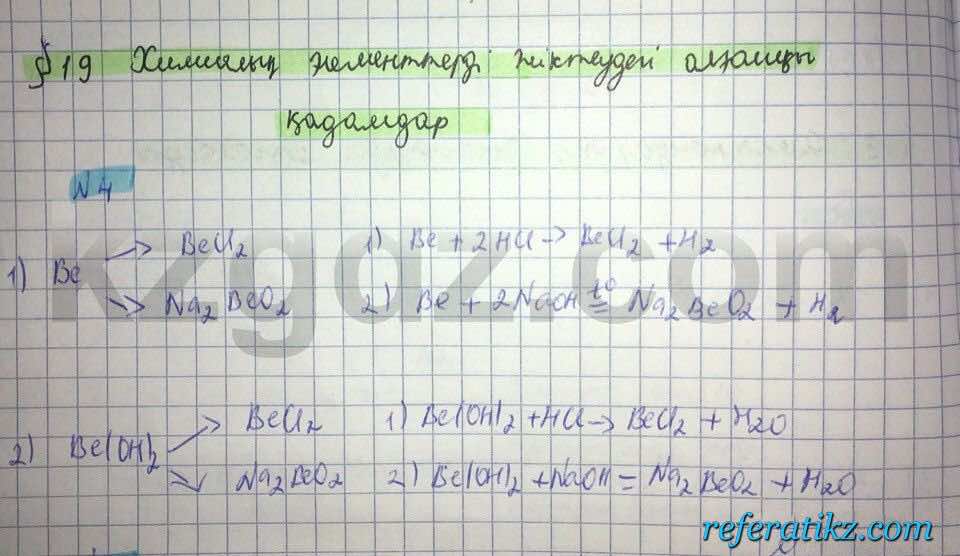 § 19 Химиялық элементтерді жіктеудегі алғашқы
қадамдар
N 4
1) Be → BeCl2 1) Be + 2HCl → BeCl2 + H2
→ Na2BeO2 2) Be + 2NaOH t° = Na2BeO2 + H2
2) Be(OH)2 → BeCl2 1) Be(OH)2 + HCl → BeCl2 + H2O
→ Na2BeO2 2) Be(OH)2 + NaOH = Na2BeO2 + H2O
kzgdz.com
referatikz.com